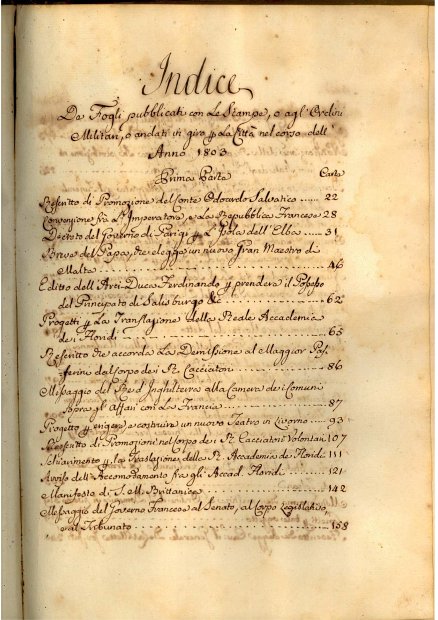 Indice
De Fogli pubblicati con Le Stampe, o agl' Ordini
Militari, o andati in giro p la Città nel corso dell'
Anno 1803
Prima Parte Carte
Rescritto di Promozione del Conte Odoardo Salvatico ...... 22
Convenzione frà L'Imperatore, e La Repubblica Francese 28
Decreto del Governo di Parigi p L'Isola dell'Elba ...... 31
Breve del Papa, che elegge un nuovo Gran Maestro di
Malta ...... 46
Editto dell'Arci-Duca Ferdinando p prendere il Possesso
del Principato di Salisburgo &c ...... 62
Progetti p La Translazione della Reale Accademia
de i Floridi ...... 65
Rescritto che accorda La Demissione al Maggior Pas-
serini dal Corpo de i SS. Cacciatori ...... 86
Messaggio del Re d'Inghilterra alla Camera de i Comuni
sopra gl'Affari con La Francia ...... 87
Progetto p erigere, e costruire un nuovo Teatro in Livorno .. 93
Rescritto di Promozioni nel Corpo de i SS. Cacciatori Volontari 107
Schiarimento p la Traslazione della SS. Accademia de i Floridi 111
Avviso dell'Accomodamento fra gli Accad. Floridi ...... 121
Manifesto di S. M. Brittanica ...... 142
Messaggio del Governo Francese al Senato, al Corpo Legislativo,
e al Tribunato ...... 158